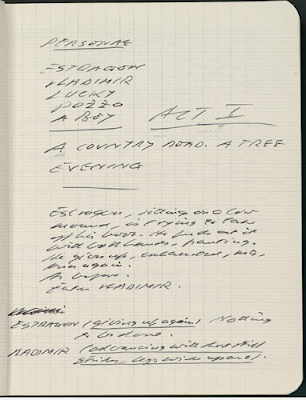 PERSONAE
ESTRAGON
VLADIMIR
LUCKY
POZZO
A BOY ACT I
A COUNTRY ROAD. A TREE
EVENING
Estragon, sitting on a low
mound, is trying to take
off his boot. He pulls at it
with both hands, panting.
He gives up, exhausted, rests,
tries again.
As before.
Enter VLADIMIR.
ESTRAGON (giving up again) Nothing
to be done.
VLADIMIR (advancing with short stiff
strides, legs wide apart)